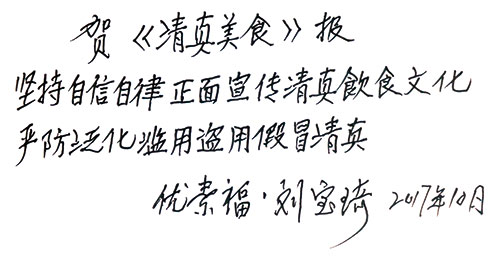 贺《清真美食》报
坚持自信自律正面宣传清真飲食文化
严防泛化滥用盗用假冒清真
优素福·刘宝琦 2017年10月